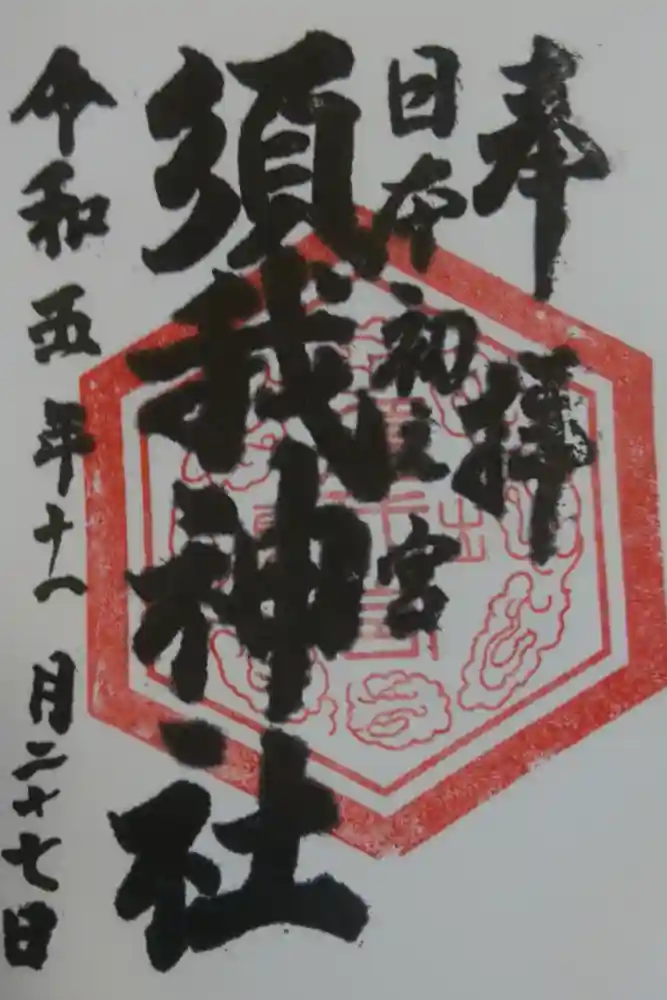 奉拝
日本初之宮
須我神社
令和五年十一月二十七日
出